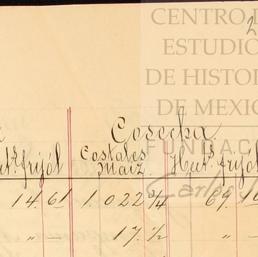 CENTRO D
ESTUDIO
DE HISTOR
DE MEXIC
FUNDAC
Carlos
2
Cosecha
frijól Costales Maiz Hect.s frijol
14.61 1.022 3/4 69.
" — 17.1/2 " —